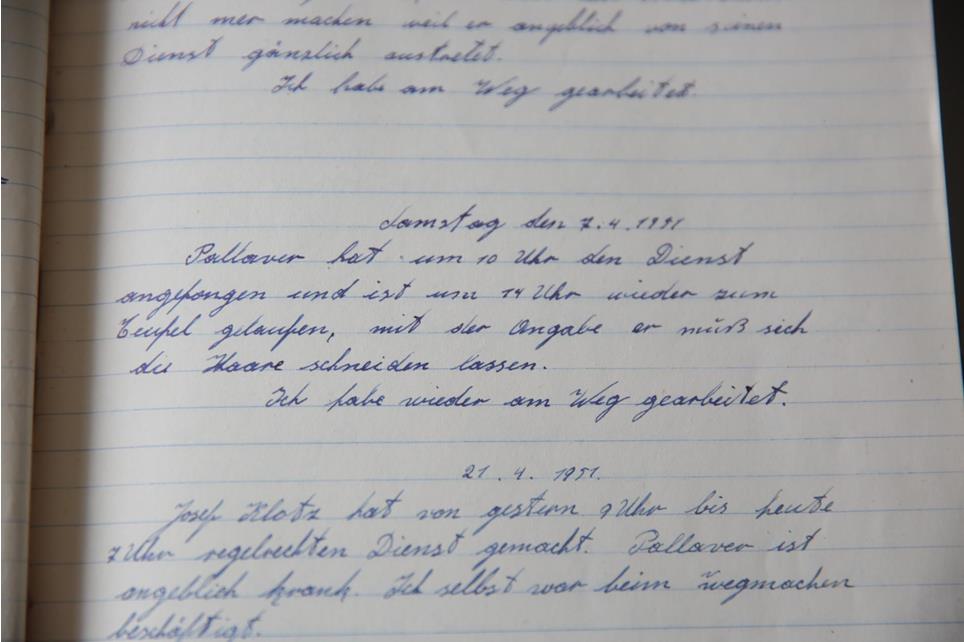 nicht mer machen weil er angeblich von seinen
Dienst gänzlich austretet.
Ich habe am Weg gearbeitet.
Samstag den 7.4.1951
Pallaver hat um 10 Uhr den Dienst
angefangen und ist um 14 Uhr wieder zum
Teufel gelaufen, mit der Angabe er muß sich
die Haare schneiden lassen.
Ich habe wieder am Weg gearbeitet.
21.4.1951.
Josef Klotz hat von gestern 7 Uhr bis heute
7 Uhr regelrechten Dienst gemacht. Pallaver ist
angeblich krank. Ich selbst war beim wegmachen
beschäftigt.